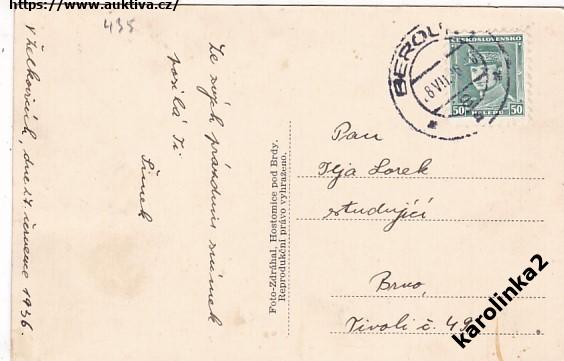 https://www.auktiva.cz/
435
Ze svých prázdnin snímek
posílá Ti
Šimek
dne 17. července 1936.
Foto-Zdráhal, Hostomice pod Brdy.
Reprodukční právo vyhraženo.
ČESKOSLOVENSKO
50 HALÉŘŮ 50
Pan
Ilja Lorek
studující
Brno,
Tivoli č.
karolinka2